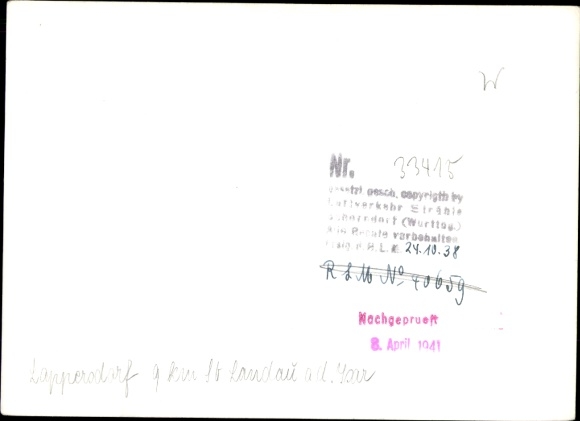 W
Nr. 33415
gesetzl gesch. copyrigth by
Luftverkehr Strähle
Schorndorf (Württbg.)
Alle Rechte vorbehalten
R.L.M. 24.10.38
R L M No 40659
Nachgeprueft
8. April 1941
9 km Landau a d. Isar